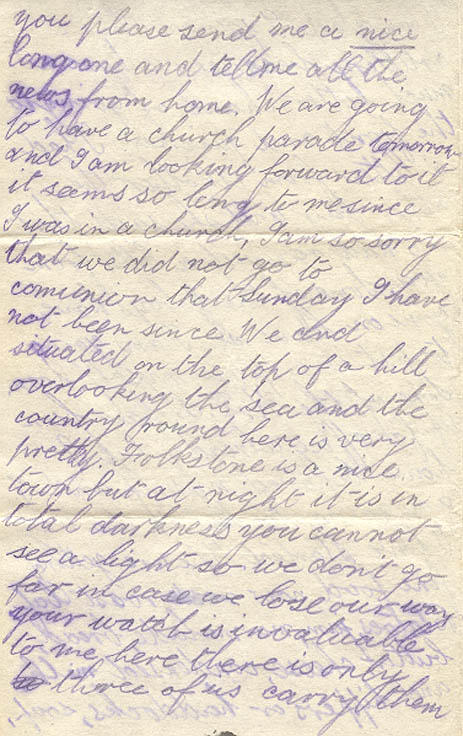 you please send me a nice
long one and tell me all the
news from home. We are going
to have a church parade tomorrow
and I am looking forward to it
it seems so long to me since
I was in a church, I am so sorry
that we did not go to
comunion that Sunday I have
not been since We and
situated on the top of a hill
overlooking the sea and the
country round here is very
pretty. Folkstone is a nice
town but at night it is in
total darkness you cannot
see a light so we don't go
far in case we lose our way
your watch is invaluable
to me here there is only
three of us carry them